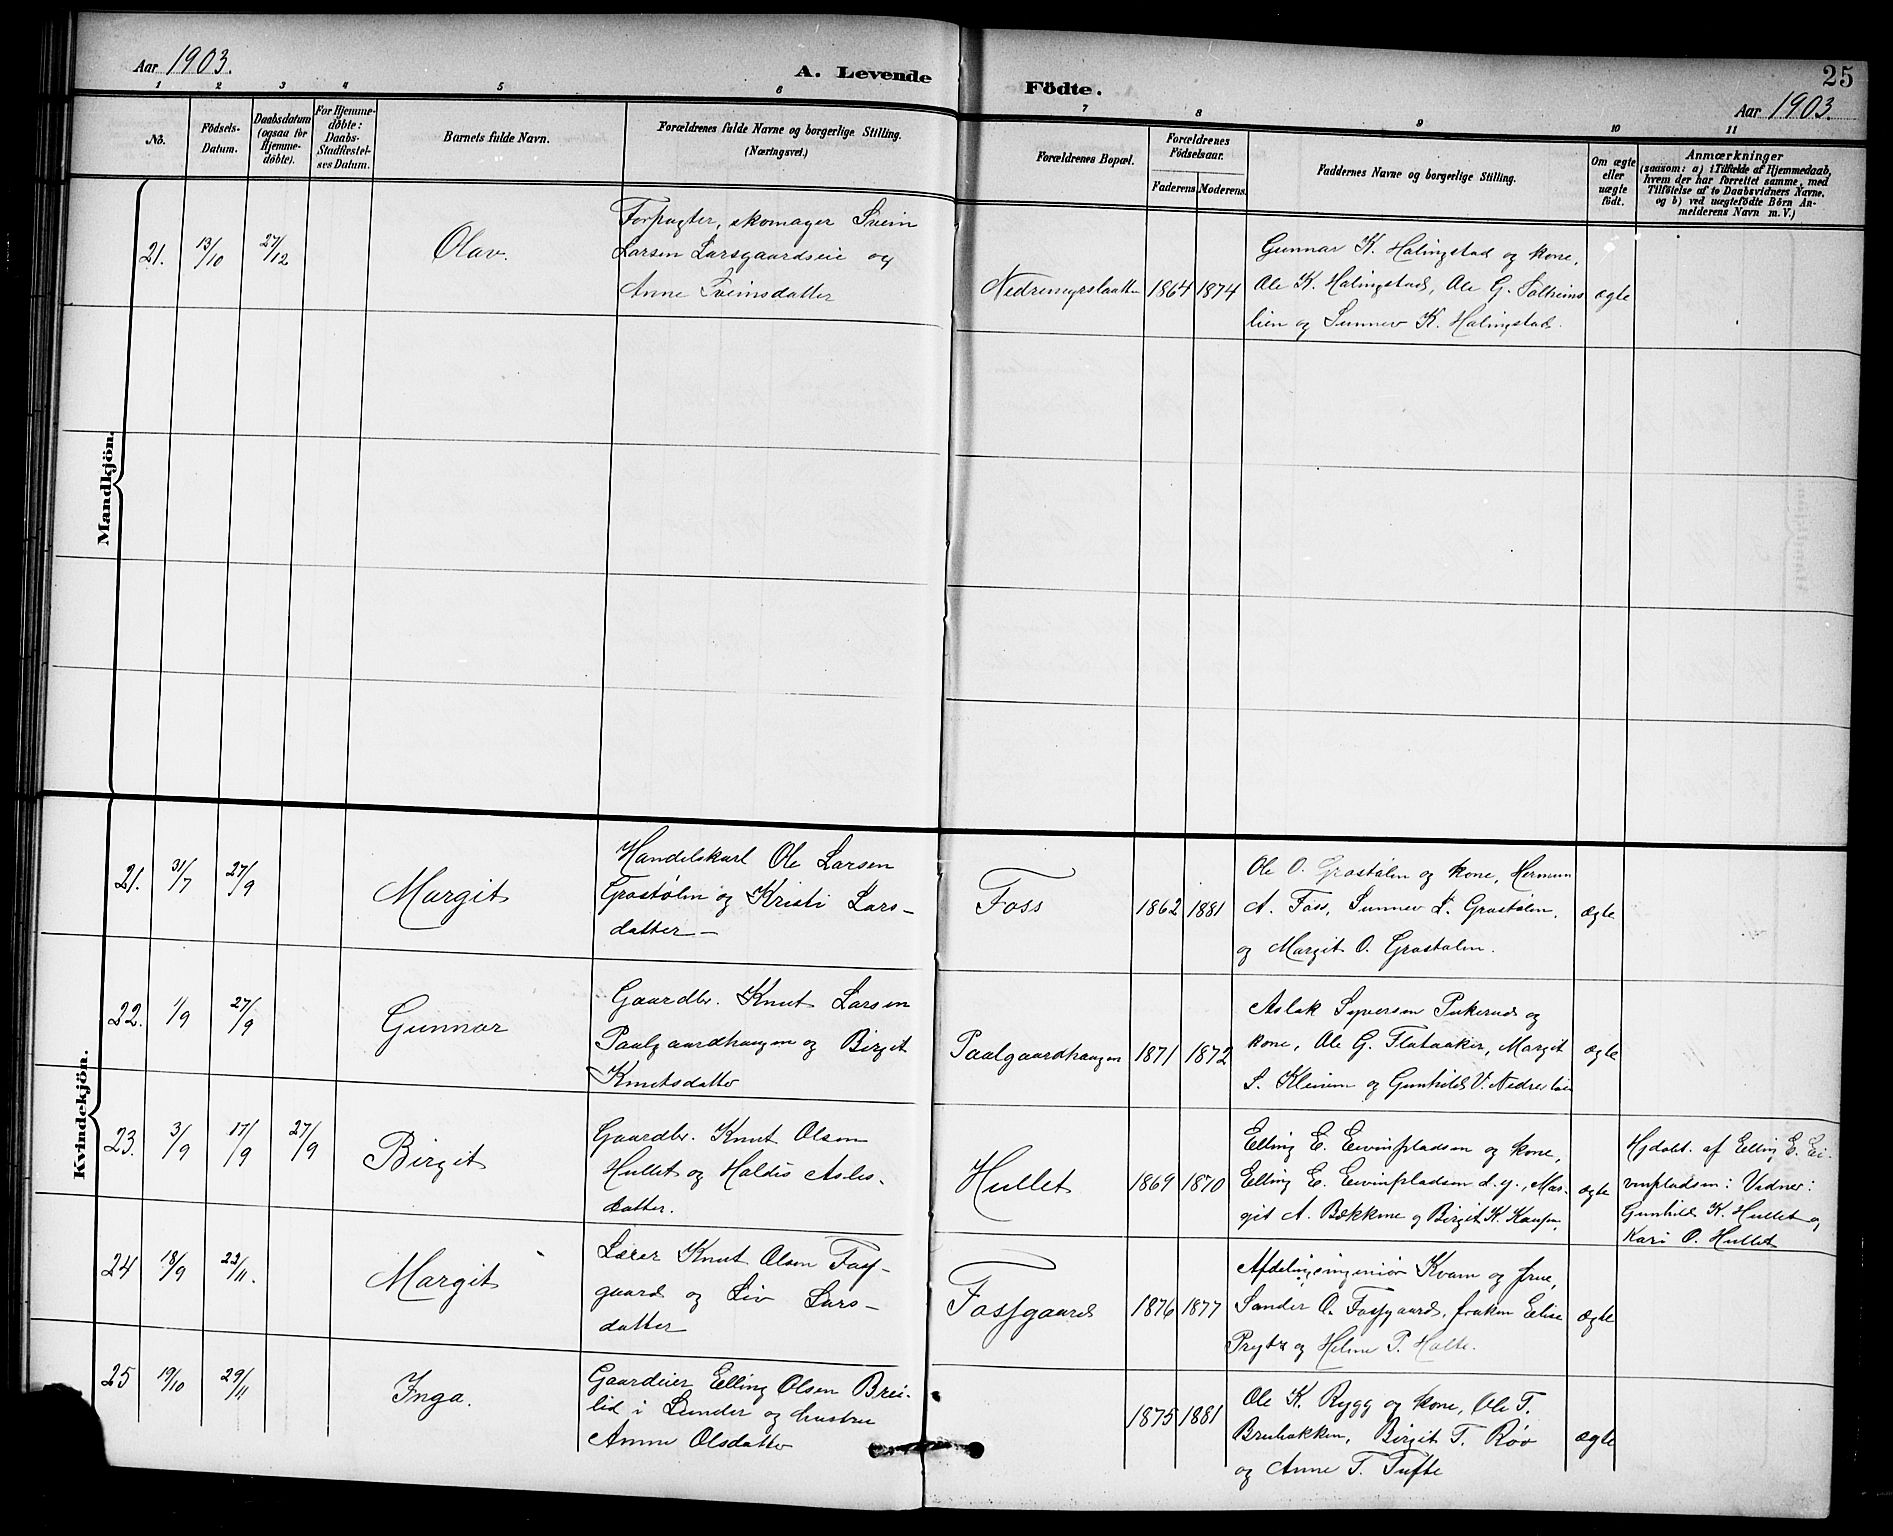 Aar 1903.
A. Levende
Födte.
25
Aar 1903.
1 2 3 4 5 6 7 8 9 10 11
No.
Födsels-
Datum.
Daabsdatum
(ogsaa for
Hjemme-
døbte).
For Hjemme-
døbte:
Daabs-
Stadfæstel-
ses Datum.
Barnets fulde Navn.
Forældrenes fulde Navne og borgerlige Stilling.
(Næringsvei.)
Forældrenes Bopæl.
Forældrenes
Födselsaar.
Faderens.
Moderens.
Faddernes Navne og borgerlige Stilling.
Om ægte
eller
uægte
födt.
Anmærkninger
(saasom: a) i Tilfælde af Hjemmedaab,
hvem der har forrettet samme, med
Tilföielse af to Daabsvidners Navne,
og b) ved uægtefödte Börn An-
melderens Navn m. V.)
Mandkjön.
21. 13/10 27/12
Olav.
Forpagter, skomager Svein
Larsen Larsgaardseie og
Anne Sveinsdatter
Nedremyrslaatten 1864 1874
Gunnar K. Halingstad og kone,
Ole K. Halingstad, Ole G. Solheims
lien og Sunnev K. Halingstad.
ægte
Kvindekjön.
21. 31/7 27/9
Margit
Handelskarl Ole Larsen
Grostølen og Kristi Lars-
datter -
Foss 1862 1881
Ole O. Grostølen og kone, Herman
A. Foss, Sunnev L. Grostølen,
og Margit O. Grostølen.
ægte
22. 1/9 27/9
Gunnor
Gaardbr. Knut Larsen
Paalgaardhaugen og Birgit
Knutsdatter
Paalgaardhaugen 1871 1872
Aslak Syversen Pukerud og
kone, Ole G. Flataaker, Margit
S. Kleiven og Gunhild V. Nedrelien
ægte
23. 3/9 17/9 27/9
Birgit
Gaardbr. Knut Olsen
Hullet og Haldis Asles-
datter.
Hullet 1869 1870
Elling E. Eivinspladsen og kone,
Elling E. Eivinspladsen d.y., Mar-
git A. Bækkene og Birgit K.
ægte
Hjdøbt. af Elling E. Ei-
vinspladsen: Vidner:
Gunhild K. Hullet og
Kari O. Hullet
24 18/9 22/11.
Margit
Lærer Knut Olsen Foss-
gaard og Liv Lars-
datter
Fossgaard 1876 1877
Afdelingsingeniør Kvam og frue,
Sander O. Fossgaard, frøken Elise
Prytz og Helene P. Holte.
ægte
25 19/10 29/11
Inga.
Gaardeier Elling Olsen Brei-
lid i Sunder og hustru
Anne Olsdatter
1875 1881
Ole K. Rygg og kone, Ole T.
Brubakken, Birgit T. Røo
og Anne T. Tufte
ægte